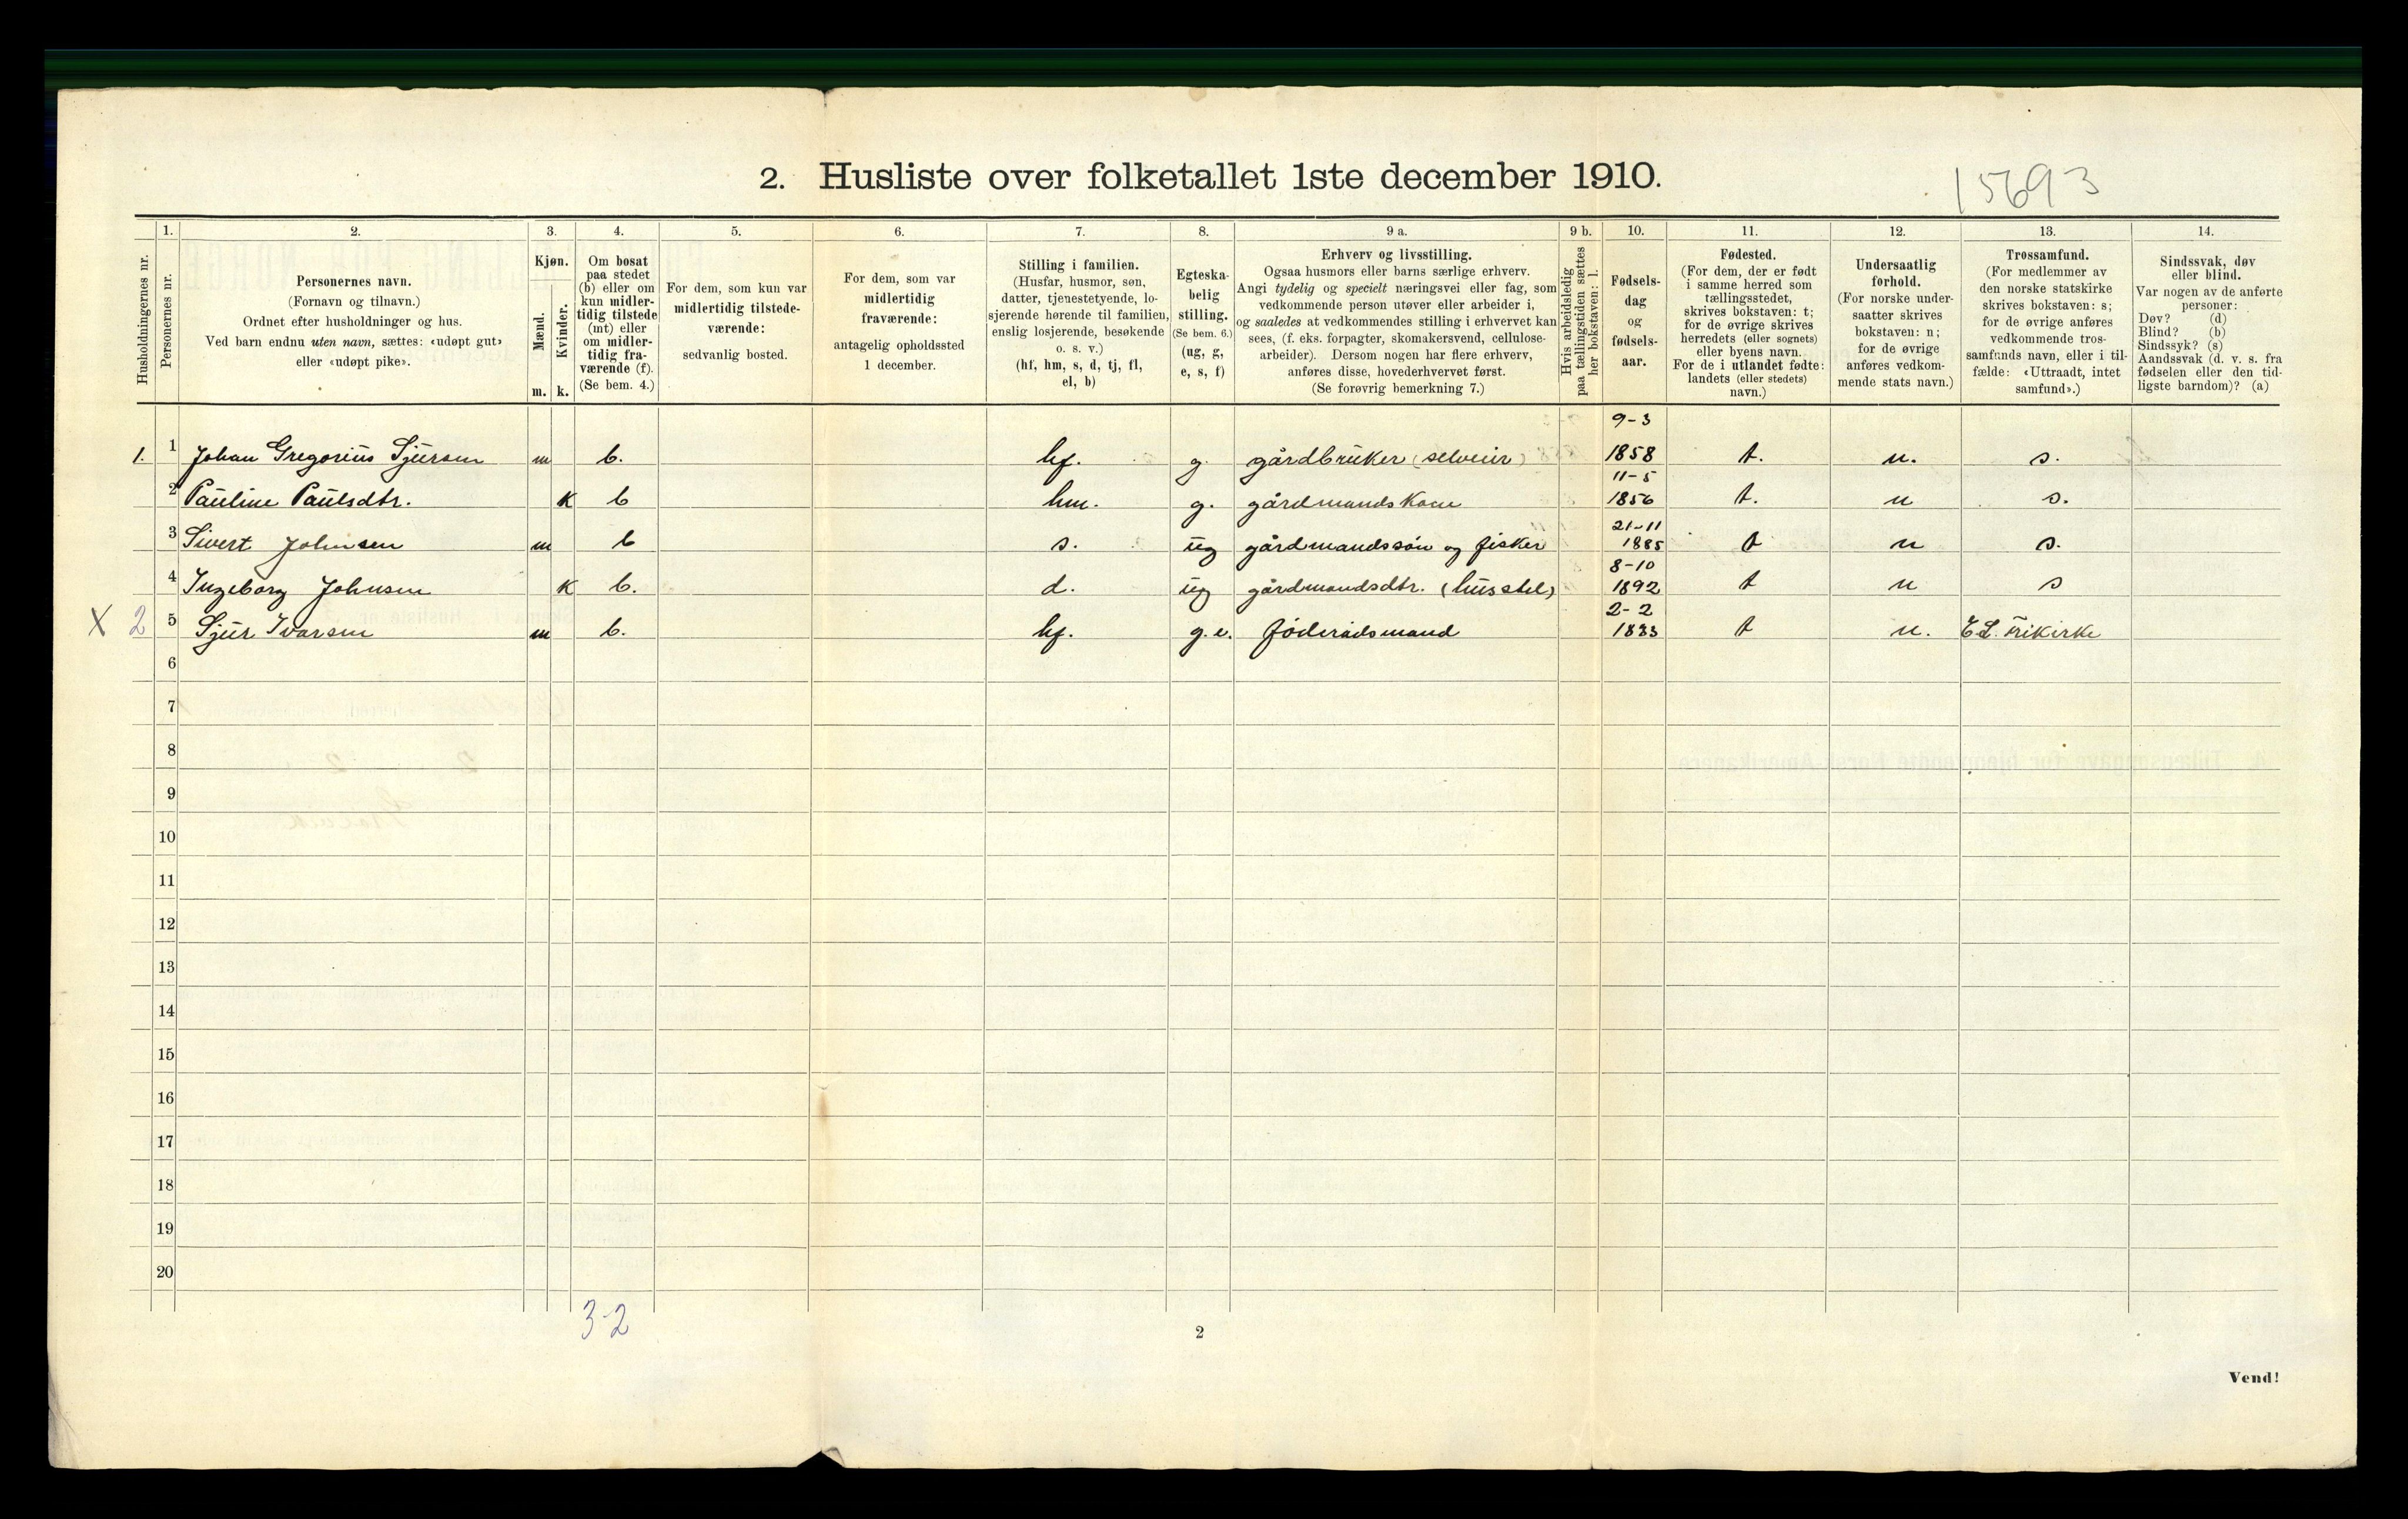 2. Husliste over folketallet 1ste december 1910.
15693
Husholdningernes nr.
1.
Personernes nr.
2.
Personernes navn.
(Fornavn og tilnavn.)
Ordnet efter husholdninger og hus.
Ved barn endnu uten navn, sættes: «udøpt gut»
eller «udøpt pike».
3.
Kjøn.
Mænd.
Kvinder.
m. k.
4.
Om bosat
paa stedet
(b) eller om
kun midler-
tidig tilstede
(mt) eller
om midler-
tidig fra-
værende (f).
(Se bem. 4.)
5.
For dem, som kun var
midlertidig tilstede-
værende:
sedvanlig bosted.
6.
For dem, som var
midlertidig
fraværende:
antagelig opholdssted
1 december.
7.
Stilling i familien.
(Husfar, husmor, søn,
datter, tjenestetyende, lo-
sjerende hørende til familien,
enslig losjerende, besøkende
o. s. v.)
(hf, hm, s, d, tj, fl,
el, b)
8.
Egteska-
belig
stilling.
(Se bem. 6.)
(ug, g,
e, s, f)
9 a.
Erhverv og livsstilling.
Ogsaa husmors eller barns særlige erhverv.
Angi tydelig og specielt næringsvei eller fag, som
vedkommende person utøver eller arbeider i,
og saaledes at vedkommendes stilling i erhvervet kan
sees, (f. eks. forpagter, skomakersvend, cellulose-
arbeider). Dersom nogen har flere erhverv,
anføres disse, hovederhvervet først.
(Se forøvrig bemerkning 7.)
9 b.
Hvis arbeidsledig
paa tællingstiden sættes
her bokstaven: l.
10.
Fødsels-
dag
og
fødsels-
aar.
11.
Fødested.
(For dem, der er født
i samme herred som
tællingsstedet,
skrives bokstaven: t;
for de øvrige skrives
herredets (eller sognets)
eller byens navn.
For de i utlandet fødte:
landets (eller stedets)
navn.)
12.
Undersaatlig
forhold.
(For norske under-
saatter skrives
bokstaven: n;
for de øvrige
anføres vedkom-
mende stats navn.)
13.
Trossamfund.
(For medlemmer av
den norske statskirke
skrives bokstaven: s;
for de øvrige anføres
vedkommende tros-
samfunds navn, eller i til-
fælde: «Uttraadt, intet
samfund».)
14.
Sindssvak, døv
eller blind.
Var nogen av de anførte
personer:
Døv? (d)
Blind? (b)
Sindssyk? (s)
Aandssvak (d. v. s. fra
fødselen eller den tid-
ligste barndom)? (a)
1. 1 Johan Gregorius Sjursen m b. hf. g. gårdbruker (selveier) 9-3 1858 t. n. s.
2 Pauline Paulsdtr. k b hm. g. gårdmandskone 11-5 1856 t. n s.
3 Sivert Johnsen m b s. ug gårdmandssøn og fisker 21-11 1885 t n s.
4 Ingeborg Johnsen k b. d. ug gårdmandsdtr. (husstel) 8-10 1892 t n s
X 2 5 Sjur Ivarsen m b. hf. g. e. föderådsmand 2-2 1833 t n. E.L. Frikirke
6
7
8
9
10
11
12
13
14
15
16
17
18
19
20
3-2
2
Vend!